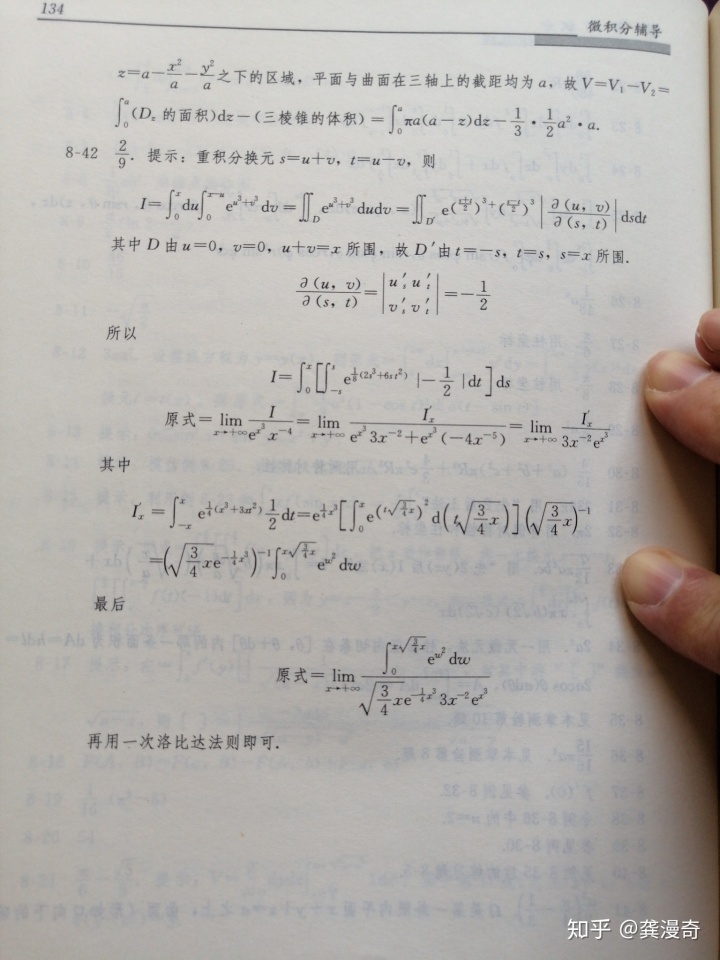 134
微积分辅导
z=a-\frac{x^2}{a}-\frac{y^2}{a}之下的区域，平面与曲面在三轴上的截距均为 a，故 V=V_1-V_2=
\int_0^a(D_z 的面积)dz-(三棱锥的体积)=\int_0^a πa(a-z)dz-\frac{1}{3}·\frac{1}{2}a^2·a.
8-42 \frac{2}{9}. 提示：重积分换元 s=u+v，t=u-v，则
I=\int_0^x du\int_0^{x-u} e^{u^3+v^3}dv=\iint_D e^{u^3+v^3}dudv=\iint_{D'} e^{(\frac{s+t}{2})^3+(\frac{s-t}{2})^3}|\frac{∂(u，v)}{∂(s，t)}|dsdt
其中 D 由 u=0，v=0，u+v=x 所围，故 D′由 t=-s，t=s，s=x 所围.
\frac{∂(u，v)}{∂(s，t)}=|u′_s u′_t v′_s v′_t|=-\frac{1}{2}
所以
I=\int_0^x[\int_{-s}^s e^{\frac{1}{8}(2s^3+6st^2)}|-\frac{1}{2}|dt]ds
原式=\lim_{x→+∞}\frac{I}{e^{x^3}x^{-4}}=\lim_{x→+∞}\frac{I′_x}{e^{x^3}3x^{-2}+e^{x^3}(-4x^{-5})}=\lim_{x→+∞}\frac{I′_x}{3x^{-2}e^{x^3}}
其中
I′_x=\int_{-x}^x e^{\frac{1}{4}(x^3+3xt^2)}\frac{1}{2}dt=e^{\frac{1}{4}x^3}[\int_0^x e^{(t\sqrt{\frac{3}{4}x})^2}d(t\sqrt{\frac{3}{4}x})](\sqrt{\frac{3}{4}x})^{-1}
=(\sqrt{\frac{3}{4}x}e^{-\frac{1}{4}x^3})^{-1}\int_0^{x\sqrt{\frac{3}{4}x}}e^{w^2}dw
最后
原式=\lim_{x→+∞}\frac{\int_0^{x\sqrt{\frac{3}{4}x}}e^{w^2}dw}{\sqrt{\frac{3}{4}x}e^{-\frac{1}{4}x^3}3x^{-2}e^{x^3}}
再用一次洛比达法则即可.
知乎 @龚漫奇